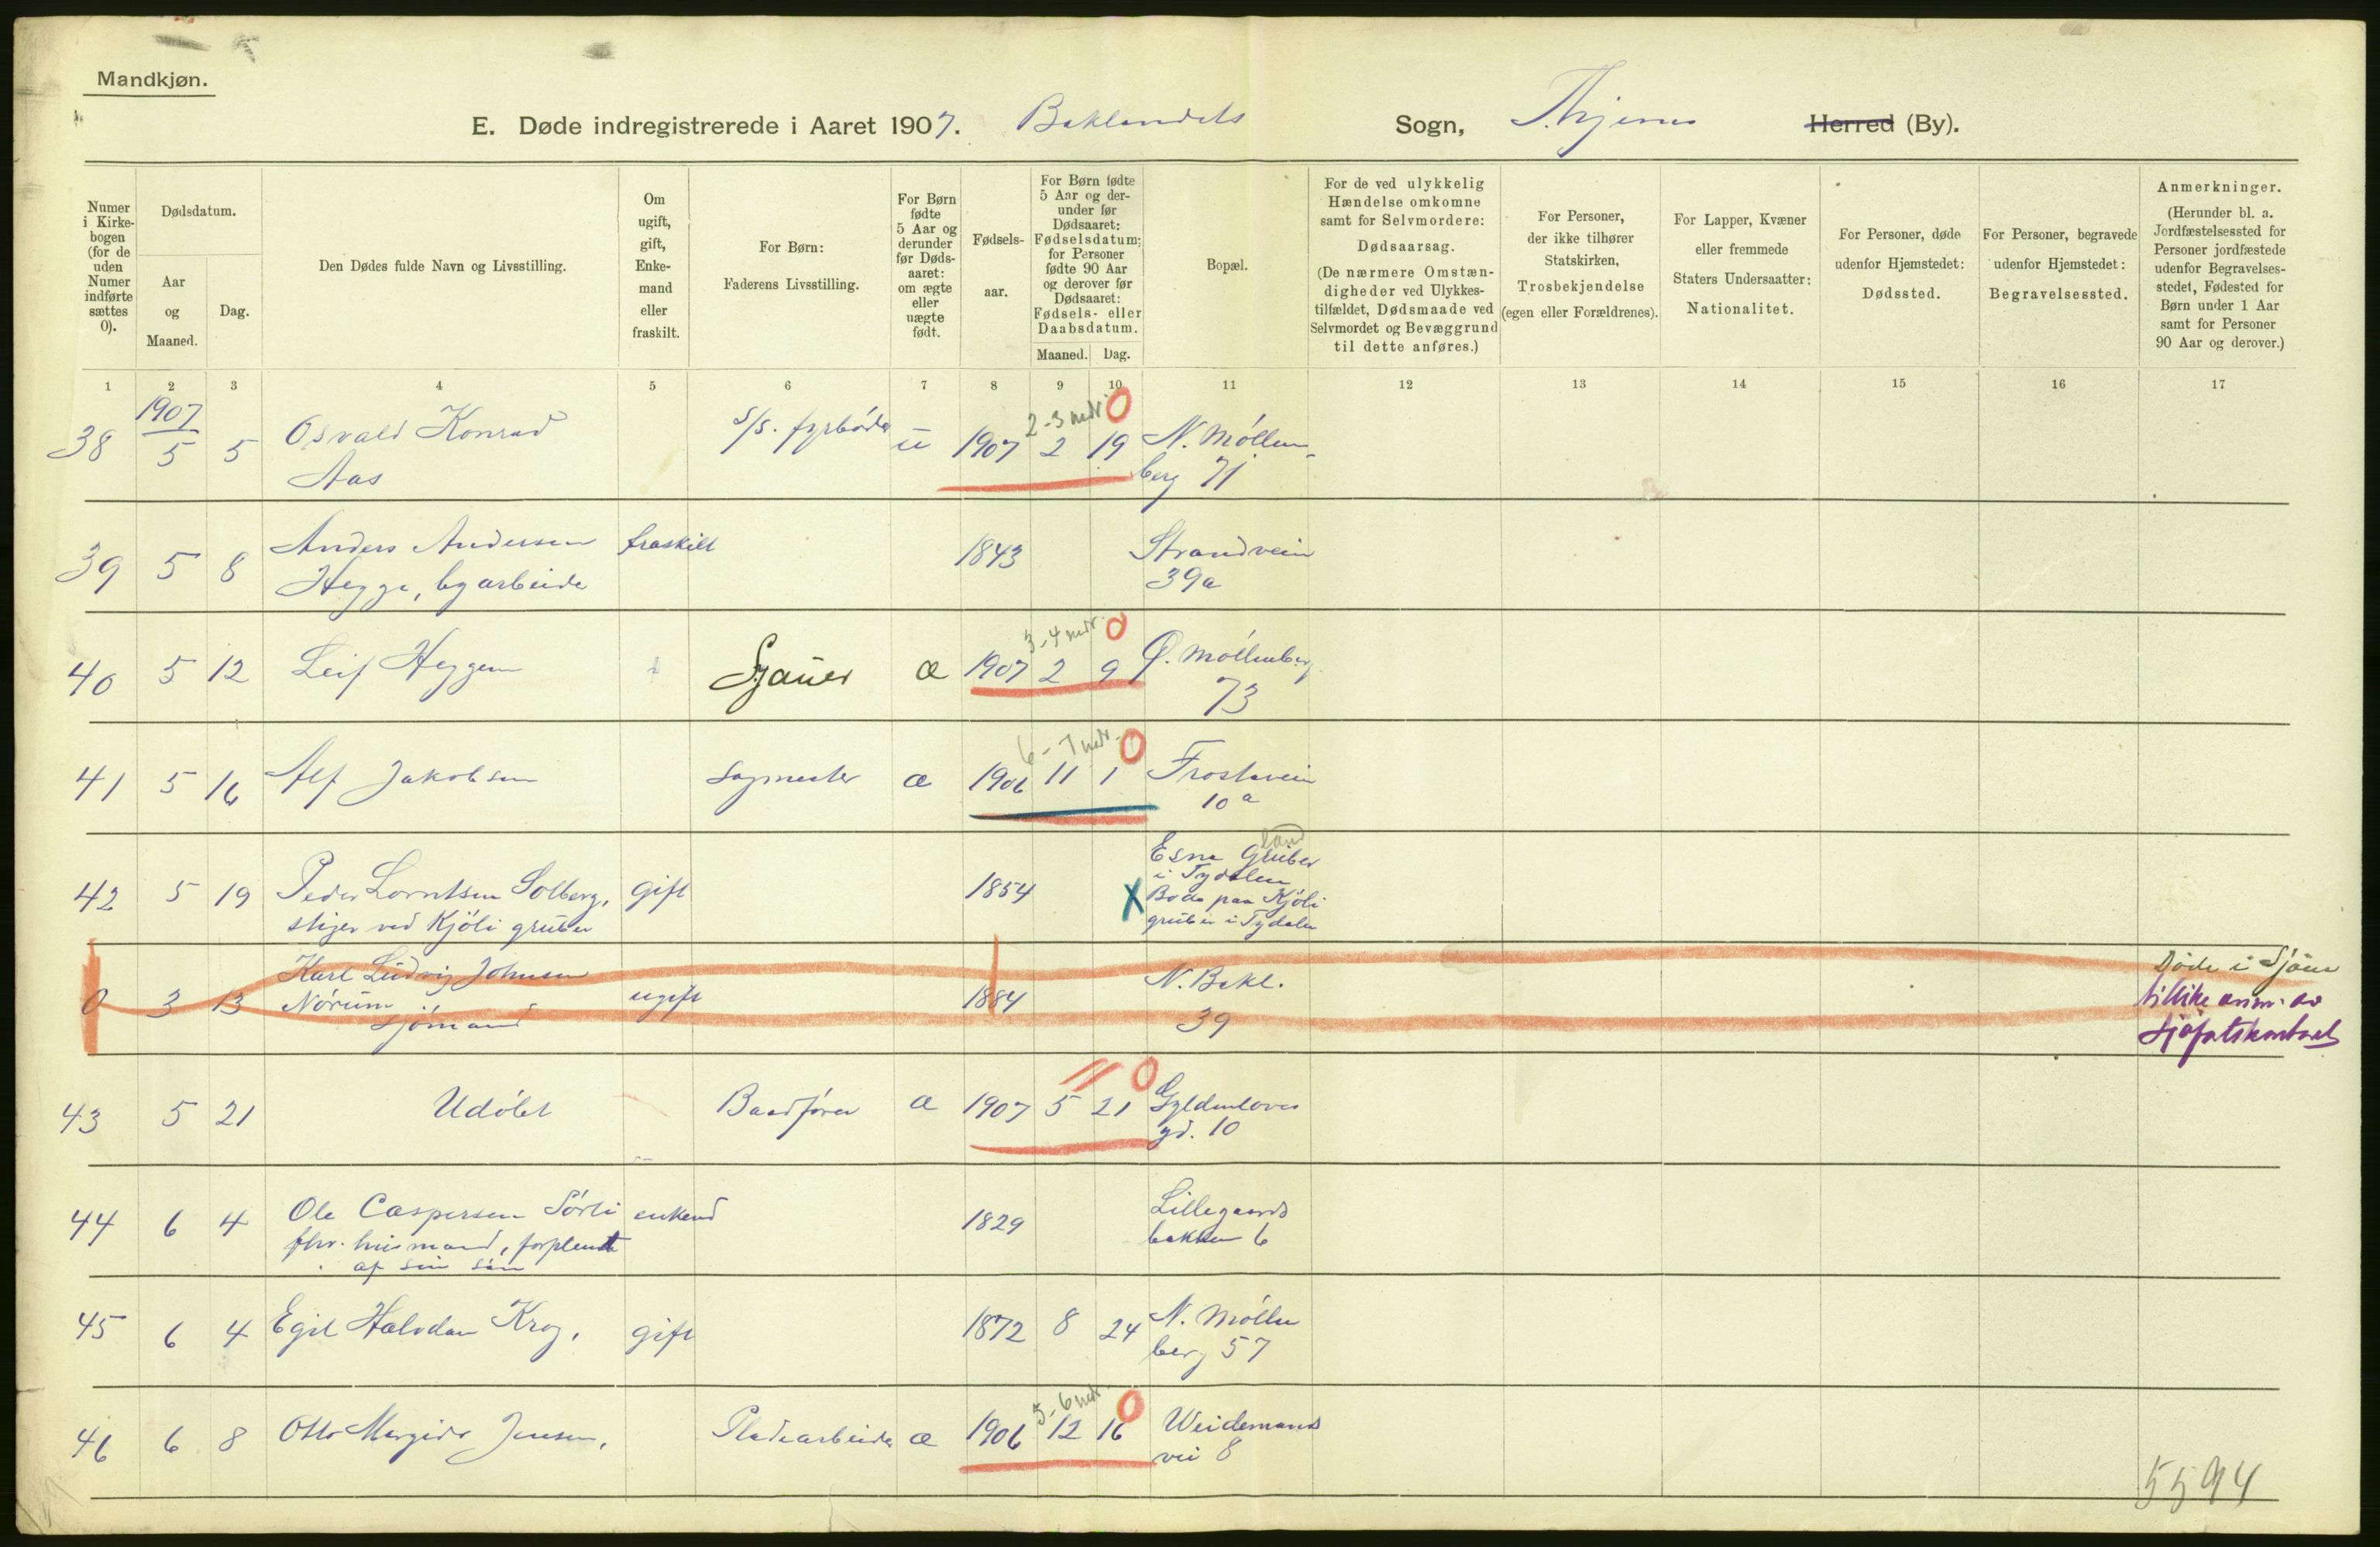 Mandkjøn.
E. Døde indregistrerede i Aaret 1907. Baklandets Sogn, Thjems Herred (By).
Numer i Kirkebogen (for de uden Numer indførte sættes 0).
Dødsdatum.
Aar og Maaned.
Dag.
Den Dødes fulde Navn og Livsstilling.
Om ugift, gift, Enkemand eller fraskilt.
For Børn: Faderens Livsstilling.
For Børn fødte 5 Aar og derunder før Dødsaaret: om ægte eller uægte født.
Fødselsaar.
For Børn fødte 5 Aar og derunder før Dødsaaret: Fødselsdatum; for Personer fødte 90 Aar og derover før Dødsaaret: Fødsels- eller Daabsdatum.
Maaned. Dag.
Bopæl.
For de ved ulykkelig Hændelse omkomne samt for Selvmordere: Dødsaarsag. (De nærmere Omstændigheder ved Ulykkestilfældet, Dødsmaade ved Selvmordet og Bevæggrund til dette anføres.)
For Personer, der ikke tilhører Statskirken, Trosbekjendelse (egen eller Forældrenes).
For Lapper, Kvæner eller fremmede Staters Undersaatter: Nationalitet.
For Personer, døde udenfor Hjemstedet: Dødssted.
For Personer, begravede udenfor Hjemstedet: Begravelsessted.
Anmerkninger. (Herunder bl. a. Jordfæstelsessted for Personer jordfæstede udenfor Begravelsesstedet, Fødested for Børn under 1 Aar samt for Personer 90 Aar og derover.)
1 2 3 4 5 6 7 8 9 10 11 12 13 14 15 16 17
1907
2-3 mdr. 0
38 5 5 Osvald Konrad S/S. fyrbøder u 1907 2 19 N. Møllen-
Aas berg 71
39 5 8 Anders Andersen fraskilt 1843 Strandvein
Hegge, byarbeide 39a
3-4 mdr. 0
40 5 12 Leif Heggem Sjauer æ 1907 2 9 Ø. Møllenberg
73
6-7 mdr. 0
41 5 16 Alf Jakobsen Sagmester æ 1906 11 1 Frostavein
10 a
land
Esna Gruber
i Tydalen
42 5 19 Peder Lorntsen Solberg, gift 1854 X Bode paa Kjöli
stiger ved Kjöli gruber gruber i Tydalen
Karl Ludvig Johnsen N. Bakl. Døde i Sjøen
0 3 13 Nórum ugift 1884 tillike anm. av
sjömand 39 sjøfatskontoret
0
43 5 21 Udöbt Baadfører æ 1907 5 21 Gyldenløves
gd. 10
44 6 4 Ole Caspersen Sörli enkemd 1829 Lillegaards
fhv. husmand, forpleiet bakken 6
af sin søn
45 6 4 Egil Halvdan Krog, gift 1872 8 24 N. Møllen
berg 57
5-6 mdr. 0
46 6 8 Otto Margido Jensen, Pladearbeider æ 1906 12 16 Weidemands
vei 8
5594